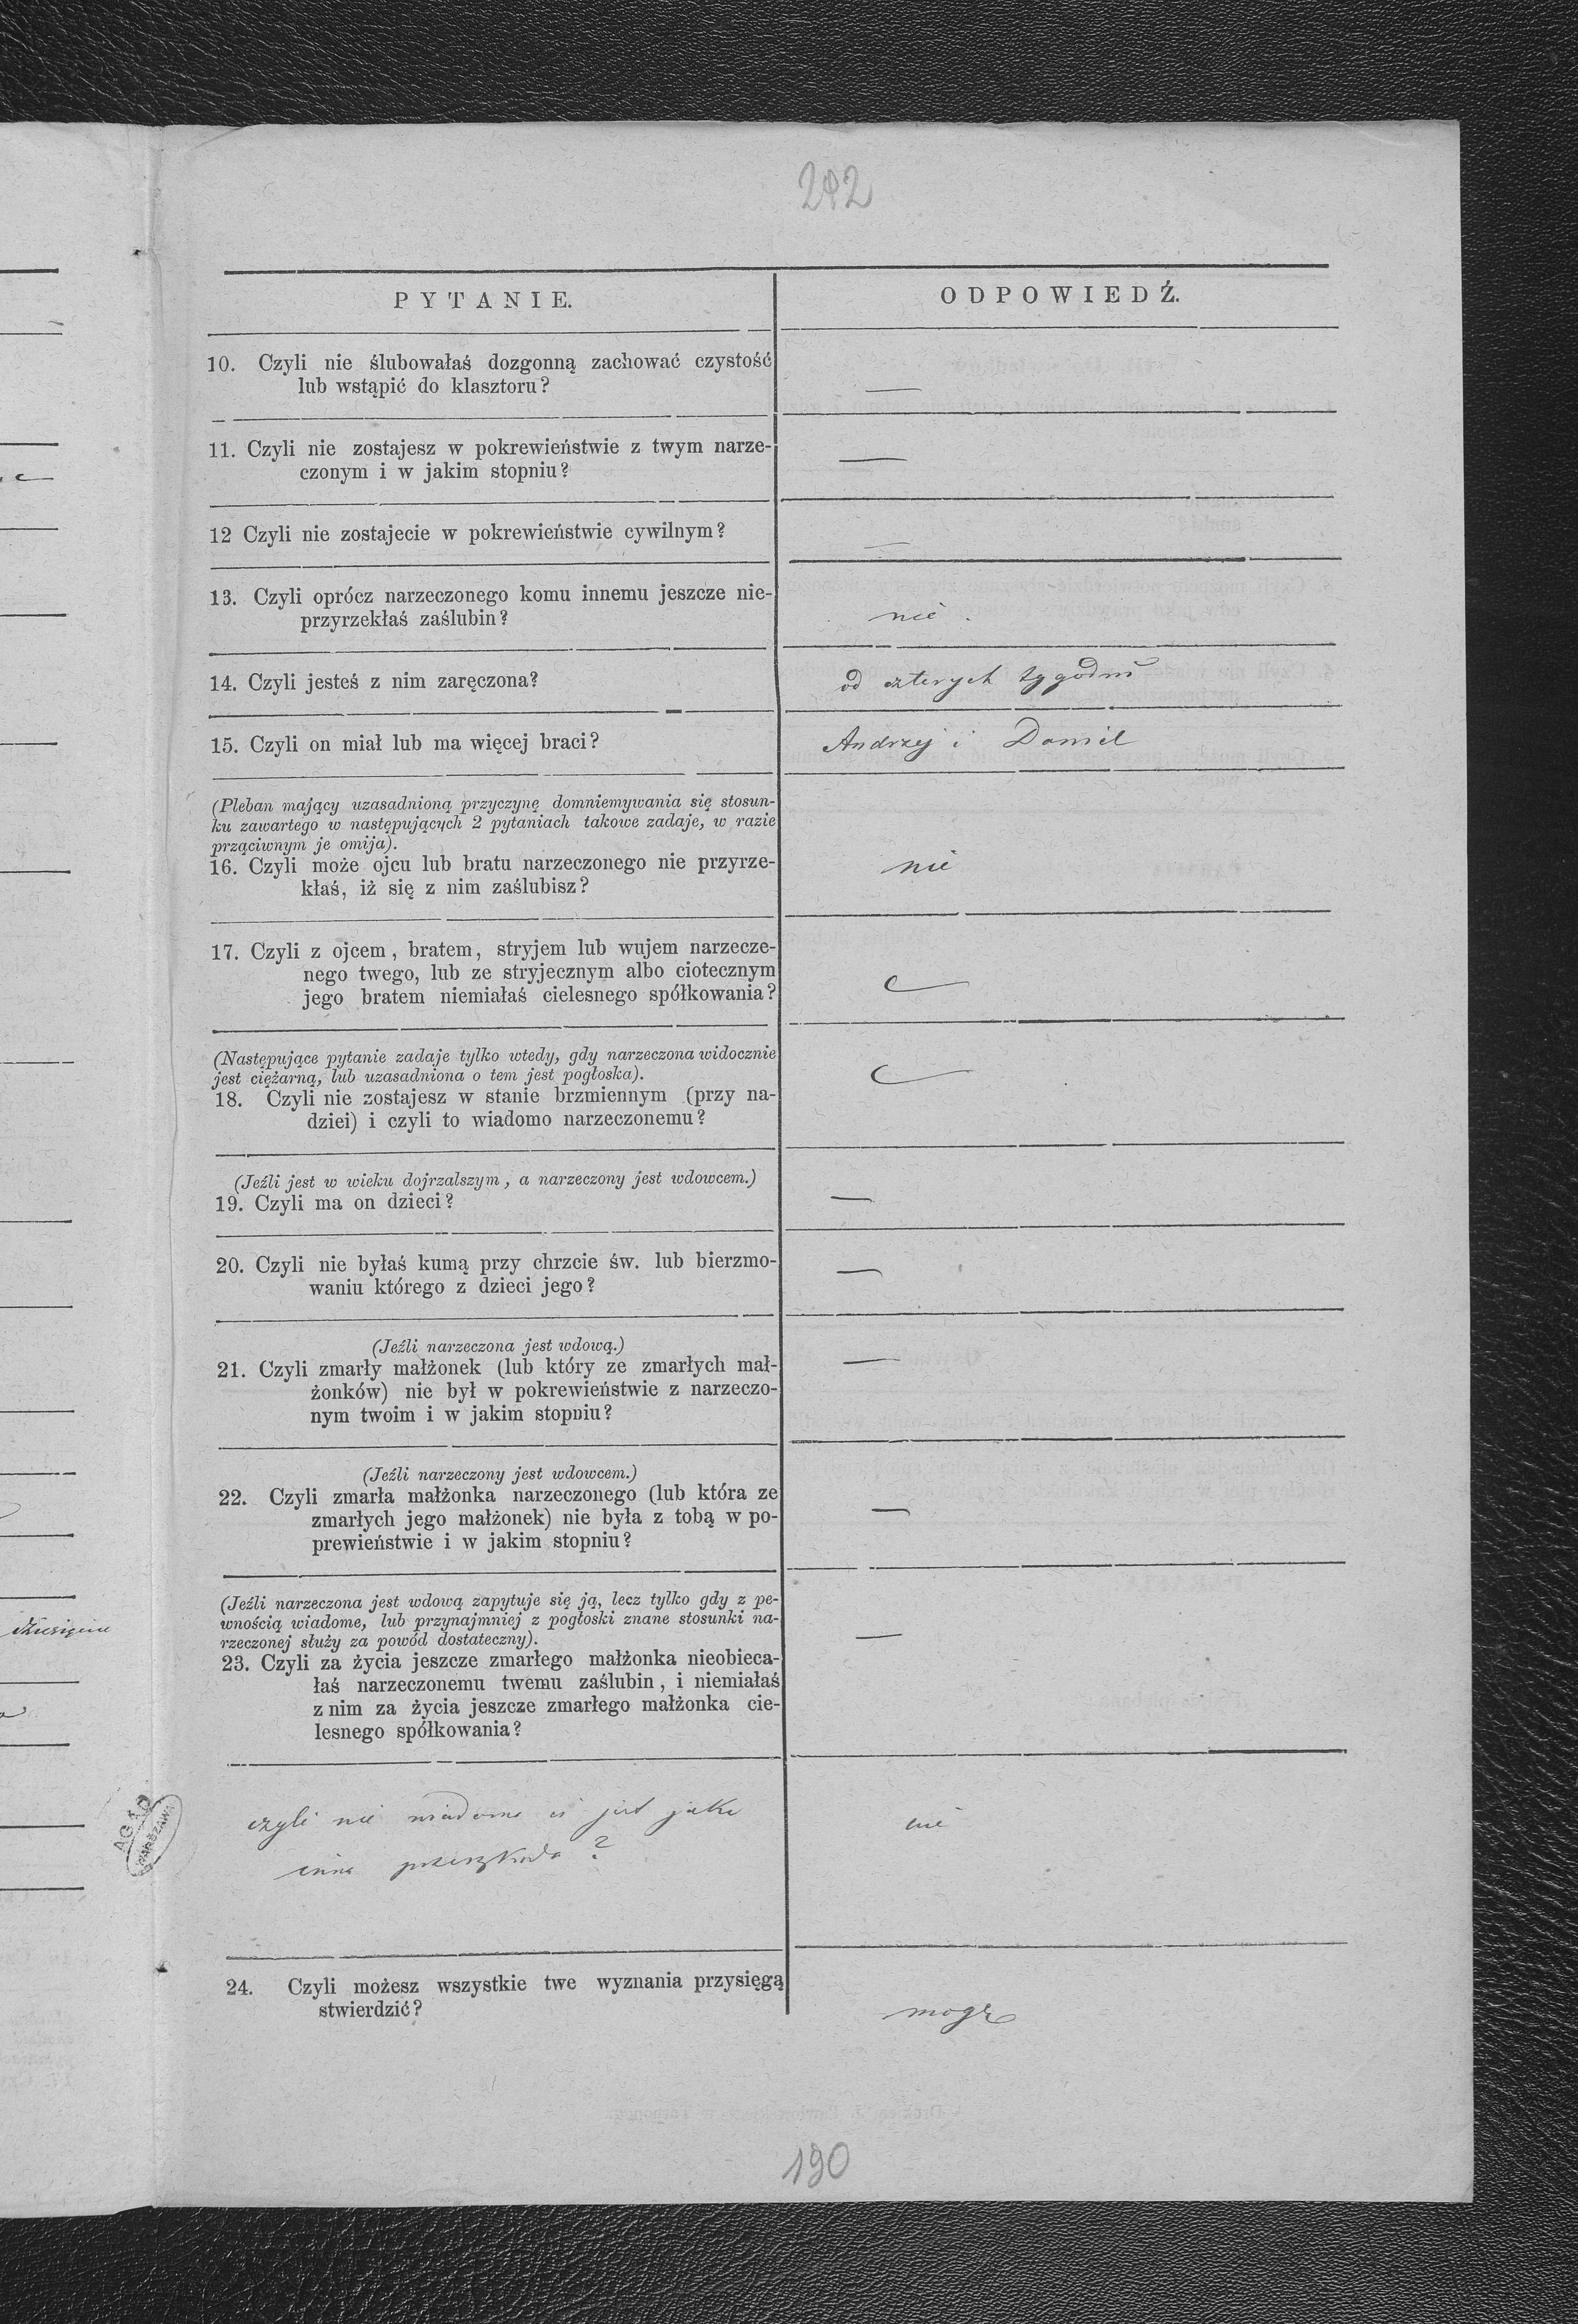 292
PYTANIE.
ODPOWIEDŹ.
10. Czyli nie ślubowałaś dozgonną zachować czystość
lub wstąpić do klasztoru?
—
11. Czyli nie zostajesz w pokrewieństwie z twym narze-
czonym i w jakim stopniu?
—
12 Czyli nie zostajecie w pokrewieństwie cywilnym?
—
13. Czyli oprócz narzeczonego komu innemu jeszcze nie-
przyrzekłaś zaślubin?
nie.
14. Czyli jesteś z nim zaręczona?
od czterych tygodni
15. Czyli on miał lub ma więcej braci?
Andrzej i Daniel
(Pleban mający uzasadnioną przyczynę domniemywania się stosun-
ku zawartego w następujących 2 pytaniach takowe zadaje, w razie
prząciwnym je omija).
16. Czyli może ojcu lub bratu narzeczonego nie przyrze-
kłaś, iż się z nim zaślubisz?
nie
17. Czyli z ojcem, bratem, stryjem lub wujem narzecze-
nego twego, lub ze stryjecznym albo ciotecznym
jego bratem niemiałaś cielesnego spółkowania?
(Następujące pytanie zadaje tylko wtedy, gdy narzeczona widocznie
jest ciężarną, lub uzasadniona o tem jest pogłoska).
18. Czyli nie zostajesz w stanie brzmiennym (przy na-
dziei) i czyli to wiadomo narzeczonemu?
(Jeźli jest w wieku dojrzalszym, a narzeczony jest wdowcem.)
19. Czyli ma on dzieci?
—
20. Czyli nie byłaś kumą przy chrzcie św. lub bierzmo-
waniu którego z dzieci jego?
—
(Jeźli narzeczona jest wdową.)
21. Czyli zmarły małżonek (lub który ze zmarłych mał-
żonków) nie był w pokrewieństwie z narzeczo-
nym twoim i w jakim stopniu?
—
(Jeźli narzeczony jest wdowcem.)
22. Czyli zmarła małżonka narzeczonego (lub która ze
zmarłych jego małżonek) nie była z tobą w po-
prewieństwie i w jakim stopniu?
—
(Jeźli narzeczona jest wdową zapytuje się ją, lecz tylko gdy z pe-
wnością wiadome, lub przynajmniej z pogłoski znane stosunki na-
rzeczonej służy za powód dostateczny).
23. Czyli za życia jeszcze zmarłego małżonka nieobieca-
łaś narzeczonemu twemu zaślubin, i niemiałaś
z nim za życia jeszcze zmarłego małżonka cie-
lesnego spółkowania?
—
czyli nie wiadome ci jest jaka
inna przeszkoda?
nie
24. Czyli możesz wszystkie twe wyznania przysięgą
stwierdzić?
mogę
AGAD
WARSZAWA
190